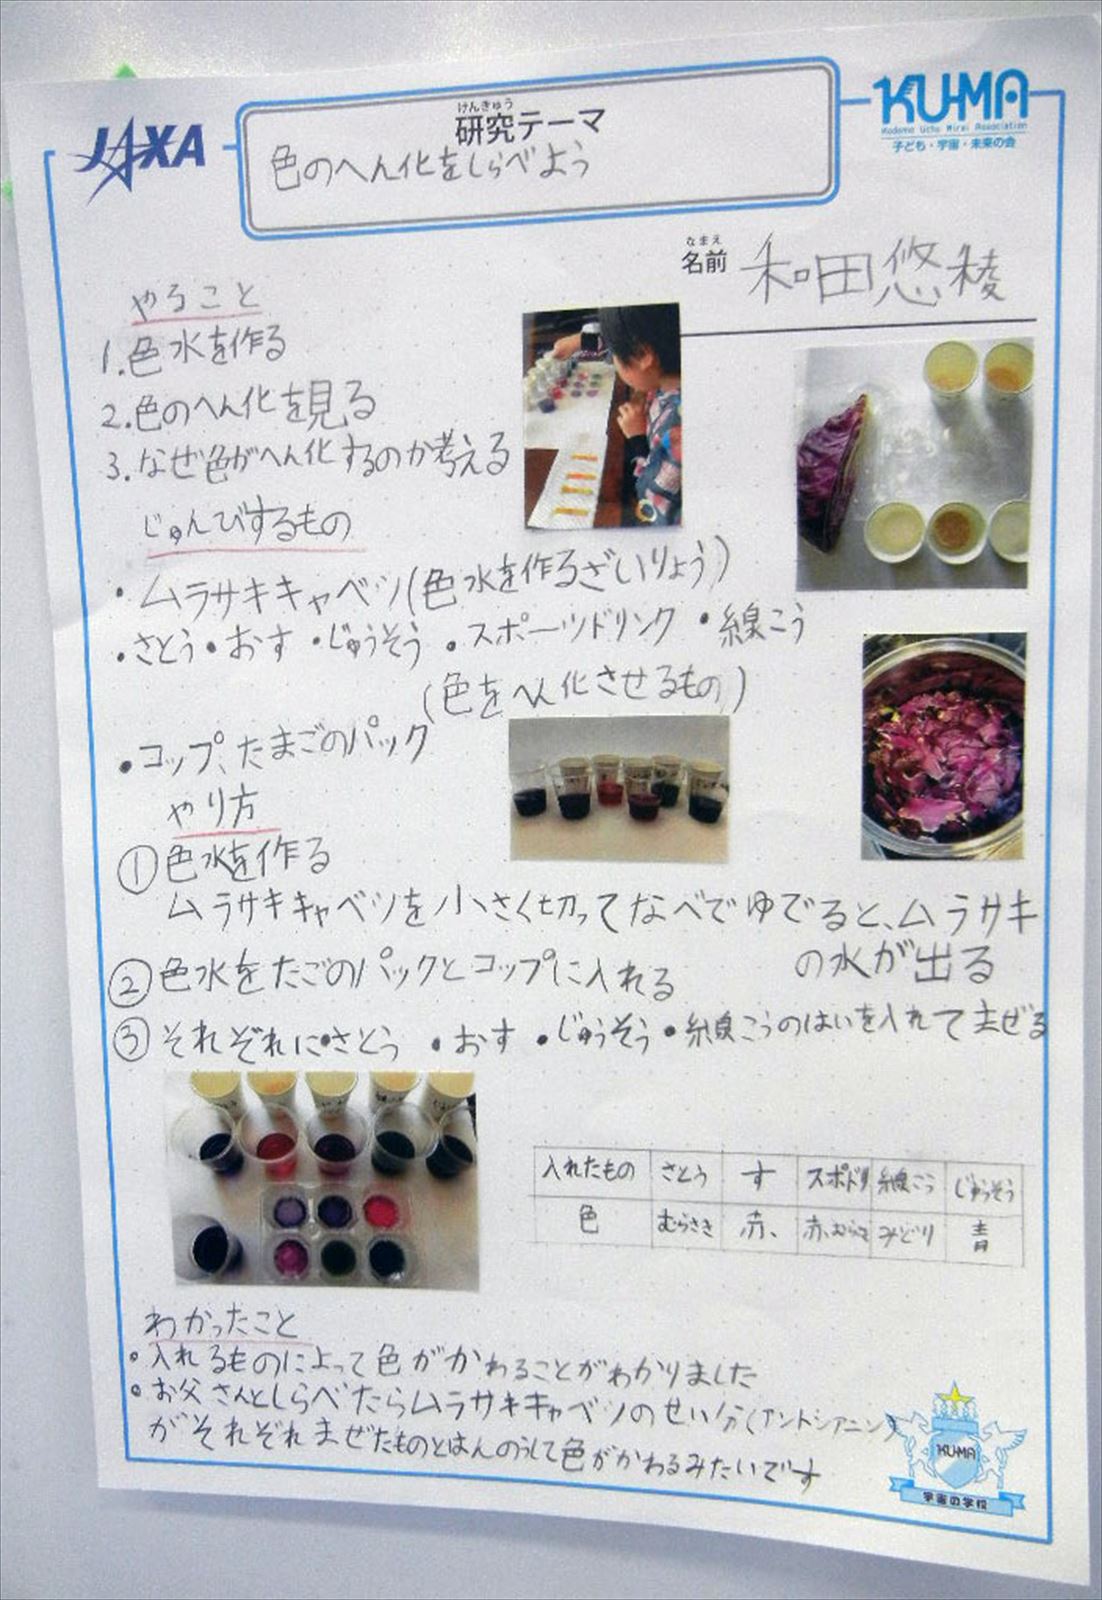 JAXA
けんきゅう
研究テーマ
色のへん化をしらべよう
KU-MA
Kodomo Uchu Mirai Association
子ども・宇宙・未来の会
なまえ
名前 和田悠稜
やること
1.色水を作る
2.色のへん化を見る
3.なぜ色がへん化するのか考える
じゅんびするもの
・ムラサキキャベツ(色水を作るざいりょう)
・さとう・おす・じゅうそう・スポーツドリンク・線こう
(色をへん化させるもの)
・コップ、たまごのパック
やり方
①色水を作る
ムラサキキャベツを小さく切ってなべでゆでると、ムラサキ
の水が出る
②色水をたごのパックとコップに入れる
③それぞれに・さとう・おす・じゅうそう・線こうのはいを入れてまぜる
入れたもの さとう す スポドリ 線こう じゅうそう
色 むらさき 赤、 赤むらさき みどり 青
わかったこと
・入れるものによって色がかわることがわかりました
・お父さんとしらべたらムラサキキャベツのせい分(アントシアニン)
がそれぞれまぜたものとはんのうして色がかわるみたいです
KU-MA
宇宙の学校